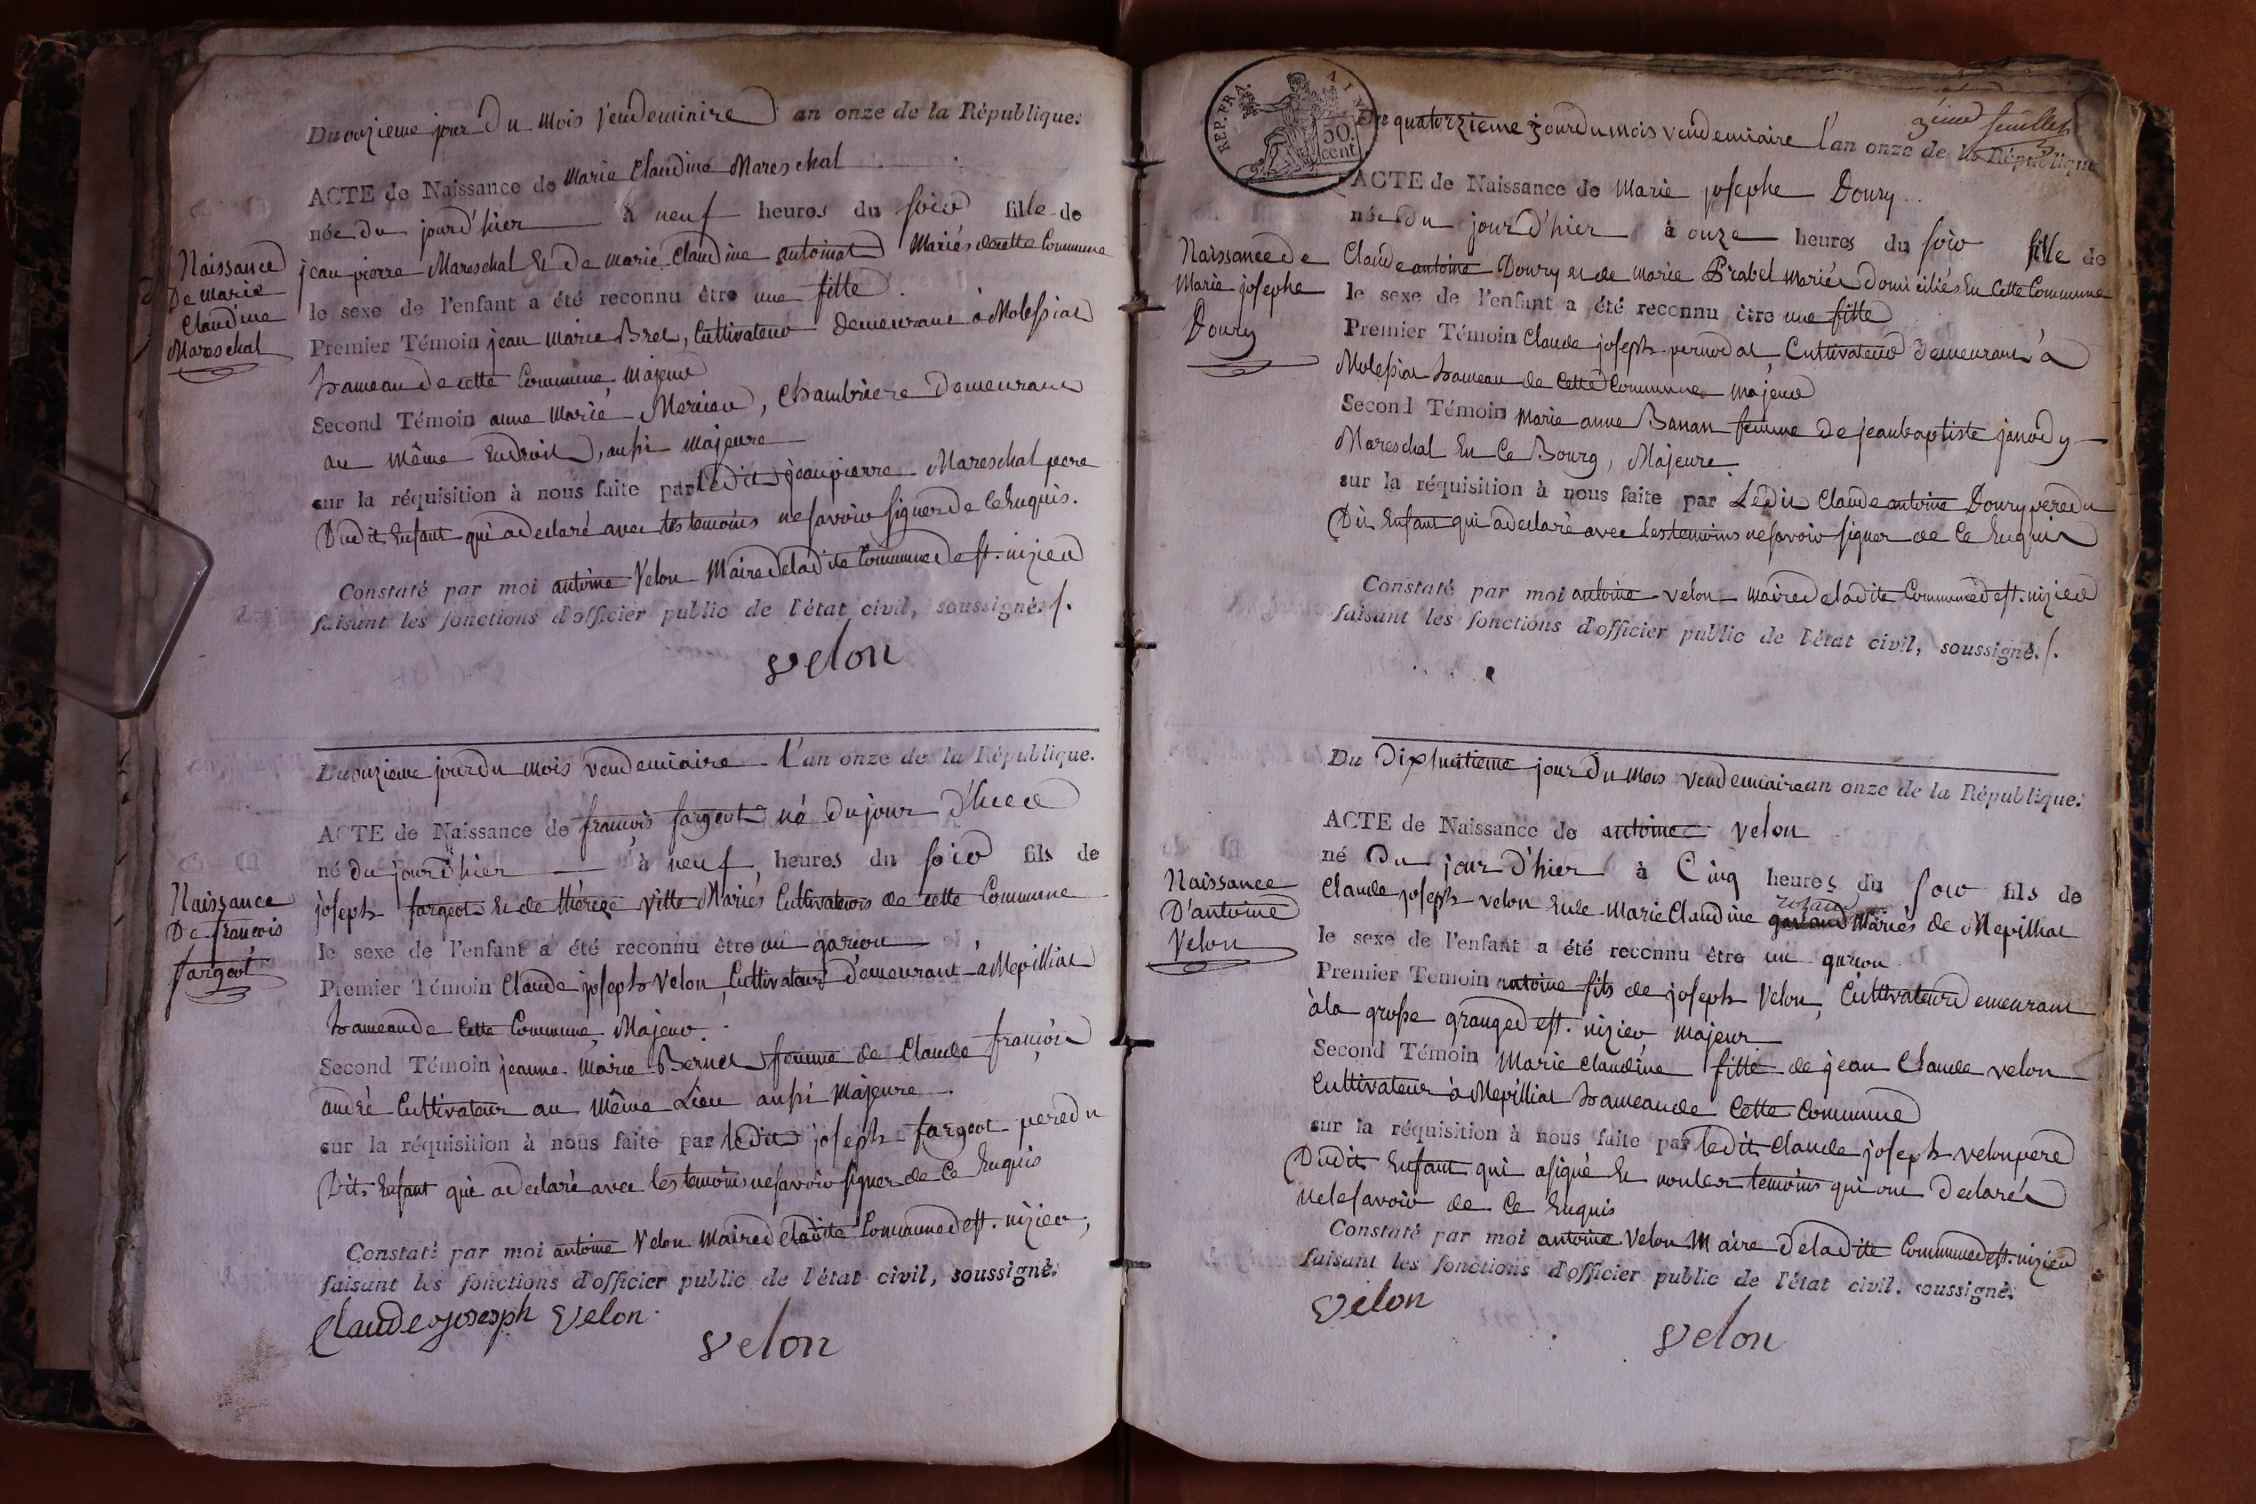 Du onzieme jour Du mois Vendemiaire an onze de la République:
ACTE de Naissance de Marie Claudine Mareschal
née Du jour d'hier à neuf heures du soir fille de
jean pierre Mareschal Et De marie Claudine antoinat Mariés de cette Commune
le sexe de l'enfant a été reconnu être une fille
Premier Témoin jean marie Bret, Cultivateur Demeurant à Molissiat
hameau De cette Commune, Majeur
Second Témoin anne Marie Merieu, Chambriere Demeurant
au même Endroit, aussi majeure
sur la réquisition à nous faite par Ledit jean pierre Mareschal pere
Dudit Enfant qui a declaré avec les temoins ne savoir signer de Ce Enquis.
Constaté par moi antoine Velon Maire De ladite Commune de st. nizier
faisant les fonctions d'officier public de l'état civil, soussigné./.
velon
Naissance
De Marie
Claudine
Mareschal
Du onzieme jour du mois vendemiaire L'an onze de la République.
ACTE de Naissance de françois fargeot né du jour d'hier
né du jour d'hier à neuf heures du soir fils de
joseph fargeot Et de thérèze ville Mariés Cultivateurs de cette Commune
le sexe de l'enfant a été reconnu être un garcon
Premier Témoin Claude joseph Velon, Cultivateur Demeurant à Mepilliat
hameau de Cette Commune, Majeur.
Second Témoin jeanne Marie Bernet femme de Claude françois
andré Cultivateur au Même Lieu aussi Majeure.
sur la réquisition à nous faite par ledit joseph fargeot pere du
Dit Enfant qui a declaré avec les temoins ne savoir signer de Ce Enquis
Constaté par moi antoine Velon maire De ladite Commune de st. nizier,
faisant les fonctions d'officier public de l'état civil, soussigné.
Claude joseph velon
velon
Naissance
De francois
fargeot
REP. FRA.
AIN
50
cent
3eme feuillet
Du quatorzieme jour du mois vendemiaire l'an onze de la République
ACTE de Naissance de Marie josephe Doury
née du jour d'hier à onze heures du soir fille de
Claude antoine Doury et de marie Brabet Mariés Domiciliés En Cette Commune
le sexe de l'enfant a été reconnu être une fille
Premier Témoin Claude joseph pernodat, Cultivateur Demeurant à
Molissiat hameau de Cette Commune majeur
Second Témoin Marie anne Banan femme de jean baptiste janody
Mareschal En Ce Bourg, Majeure
sur la réquisition à nous faite par Ledit Claude antoine Doury pere du
Dit Enfant qui a declaré avec les temoins ne savoir signer de Ce Enquis
Constaté par moi antoine velon maire de ladite Commune de st. nizier
faisant les fonctions d'officier public de l'état civil, soussigné./.
Naissance de
Marie josephe
Doury
Du Dixhuitieme jour Du mois vendemiaire an onze de la République:
ACTE de Naissance de antoine velon
né Du jour d'hier à Cinq heures du soir fils de
Claude joseph velon Et de Marie Claudine Mariés de Mepilliat
le sexe de l'enfant a été reconnu être un garcon
Premier Témoin antoine fils de joseph Velon, Cultivateur Demeurant
à la grosse grange de st. nizier, majeur
Second Témoin Marie Claudine fille de jean Claude velon
Cultivateur à Mepilliat hameau de Cette Commune
sur la réquisition à nous faite par ledit Claude joseph velon pere
Dudit Enfant qui a signé Et non les temoins qui ont Declarés
ne le savoir de Ce Enquis
Constaté par moi antoine Velon Maire De ladite Commune de st. nizier
faisant les fonctions d'officier public de l'état civil, soussigné.
velon
velon
Naissance
D'antoine
Velon